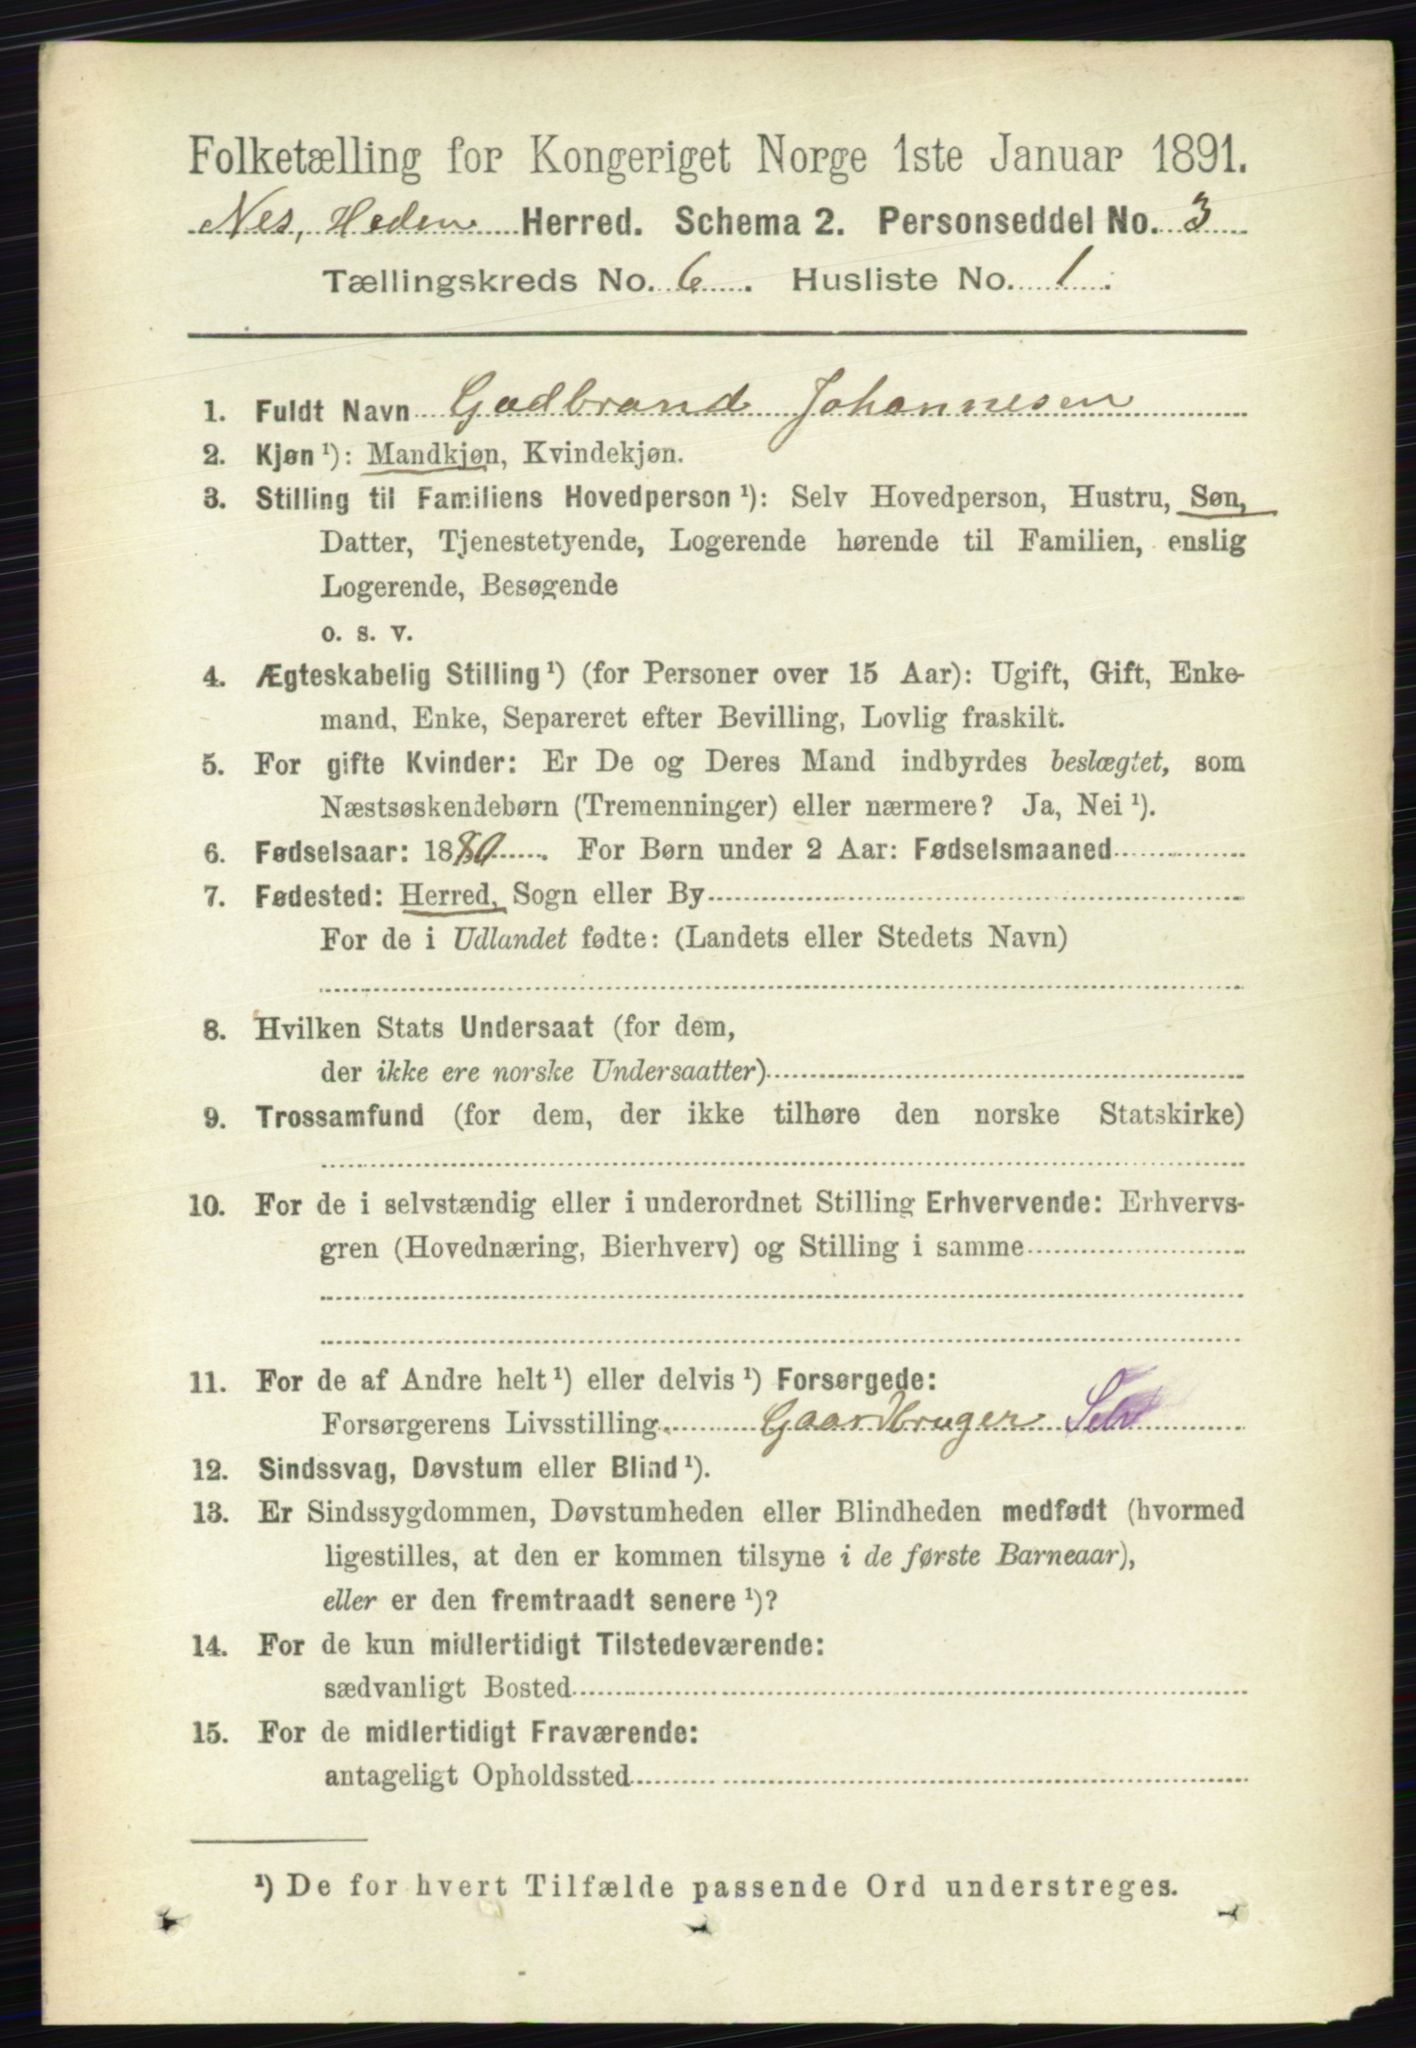 Folketælling for Kongeriget Norge 1ste Januar 1891.
Nes, Hedem Herred. Schema 2. Personseddel No. 3
Tællingskreds No. 6. Husliste No. 1.
1. Fuldt Navn Gudbrand Johannesen
2. Kjøn ¹): Mandkjøn, Kvindekjøn.
3. Stilling til Familiens Hovedperson ¹): Selv Hovedperson, Hustru, Søn,
Datter, Tjenestetyende, Logerende hørende til Familien, enslig
Logerende, Besøgende
o. s. v.
4. Ægteskabelig Stilling ¹) (for Personer over 15 Aar): Ugift, Gift, Enke-
mand, Enke, Separeret efter Bevilling, Lovlig fraskilt.
5. For gifte Kvinder: Er De og Deres Mand indbyrdes beslægtet, som
Næstsøskendebørn (Tremenninger) eller nærmere? Ja, Nei ¹).
6. Fødselsaar: 1880. For Børn under 2 Aar: Fødselsmaaned
7. Fødested: Herred, Sogn eller By
For de i Udlandet fødte: (Landets eller Stedets Navn)
8. Hvilken Stats Undersaat (for dem,
der ikke ere norske Undersaatter)
9. Trossamfund (for dem, der ikke tilhøre den norske Statskirke)
10. For de i selvstændig eller i underordnet Stilling Erhvervende: Erhvervs-
gren (Hovednæring, Bierhverv) og Stilling i samme
11. For de af Andre helt ¹) eller delvis ¹) Forsørgede:
Forsørgerens Livsstilling Gaardbruger Selv
12. Sindssvag, Døvstum eller Blind ¹).
13. Er Sindssygdommen, Døvstumheden eller Blindheden medfødt (hvormed
ligestilles, at den er kommen tilsyne i de første Barneaar),
eller er den fremtraadt senere ¹)?
14. For de kun midlertidigt Tilstedeværende:
sædvanligt Bosted
15. For de midlertidigt Fraværende:
antageligt Opholdssted
¹) De for hvert Tilfælde passende Ord understreges.